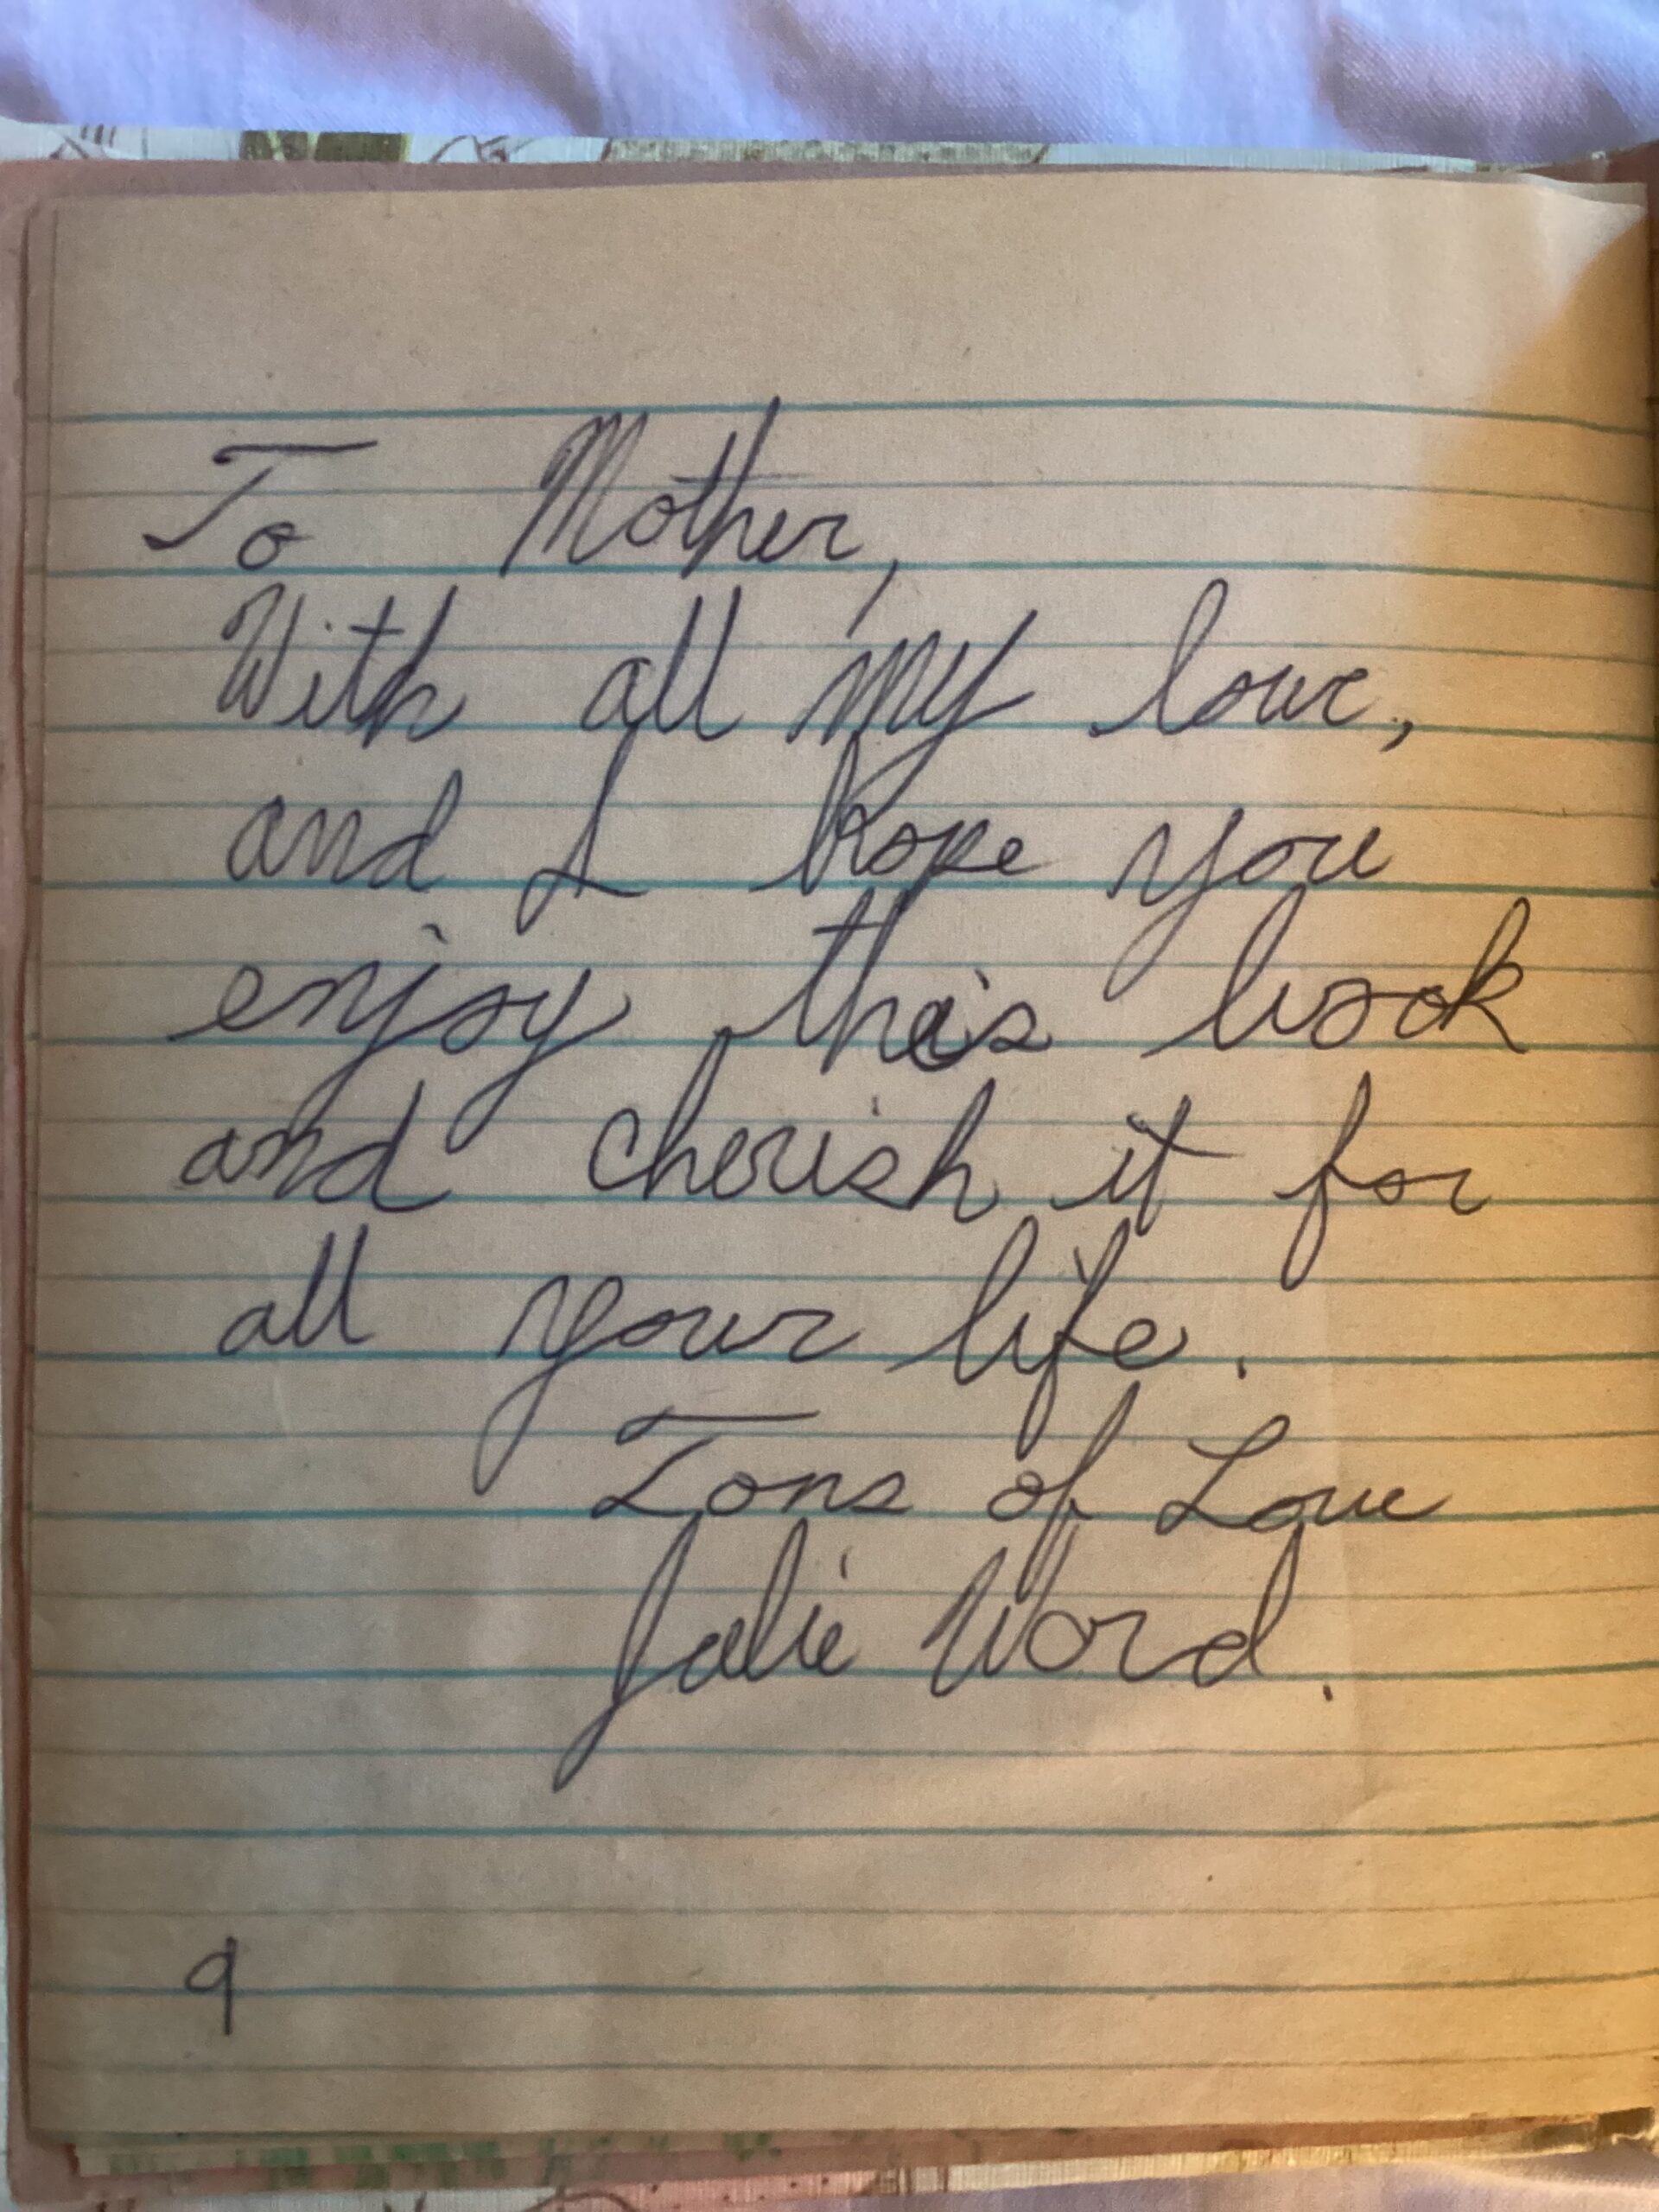 To Mother,
With all my love,
and I hope you
enjoy this book
and cherish it for
all your life.
Tons of Love
Julie Word.
9